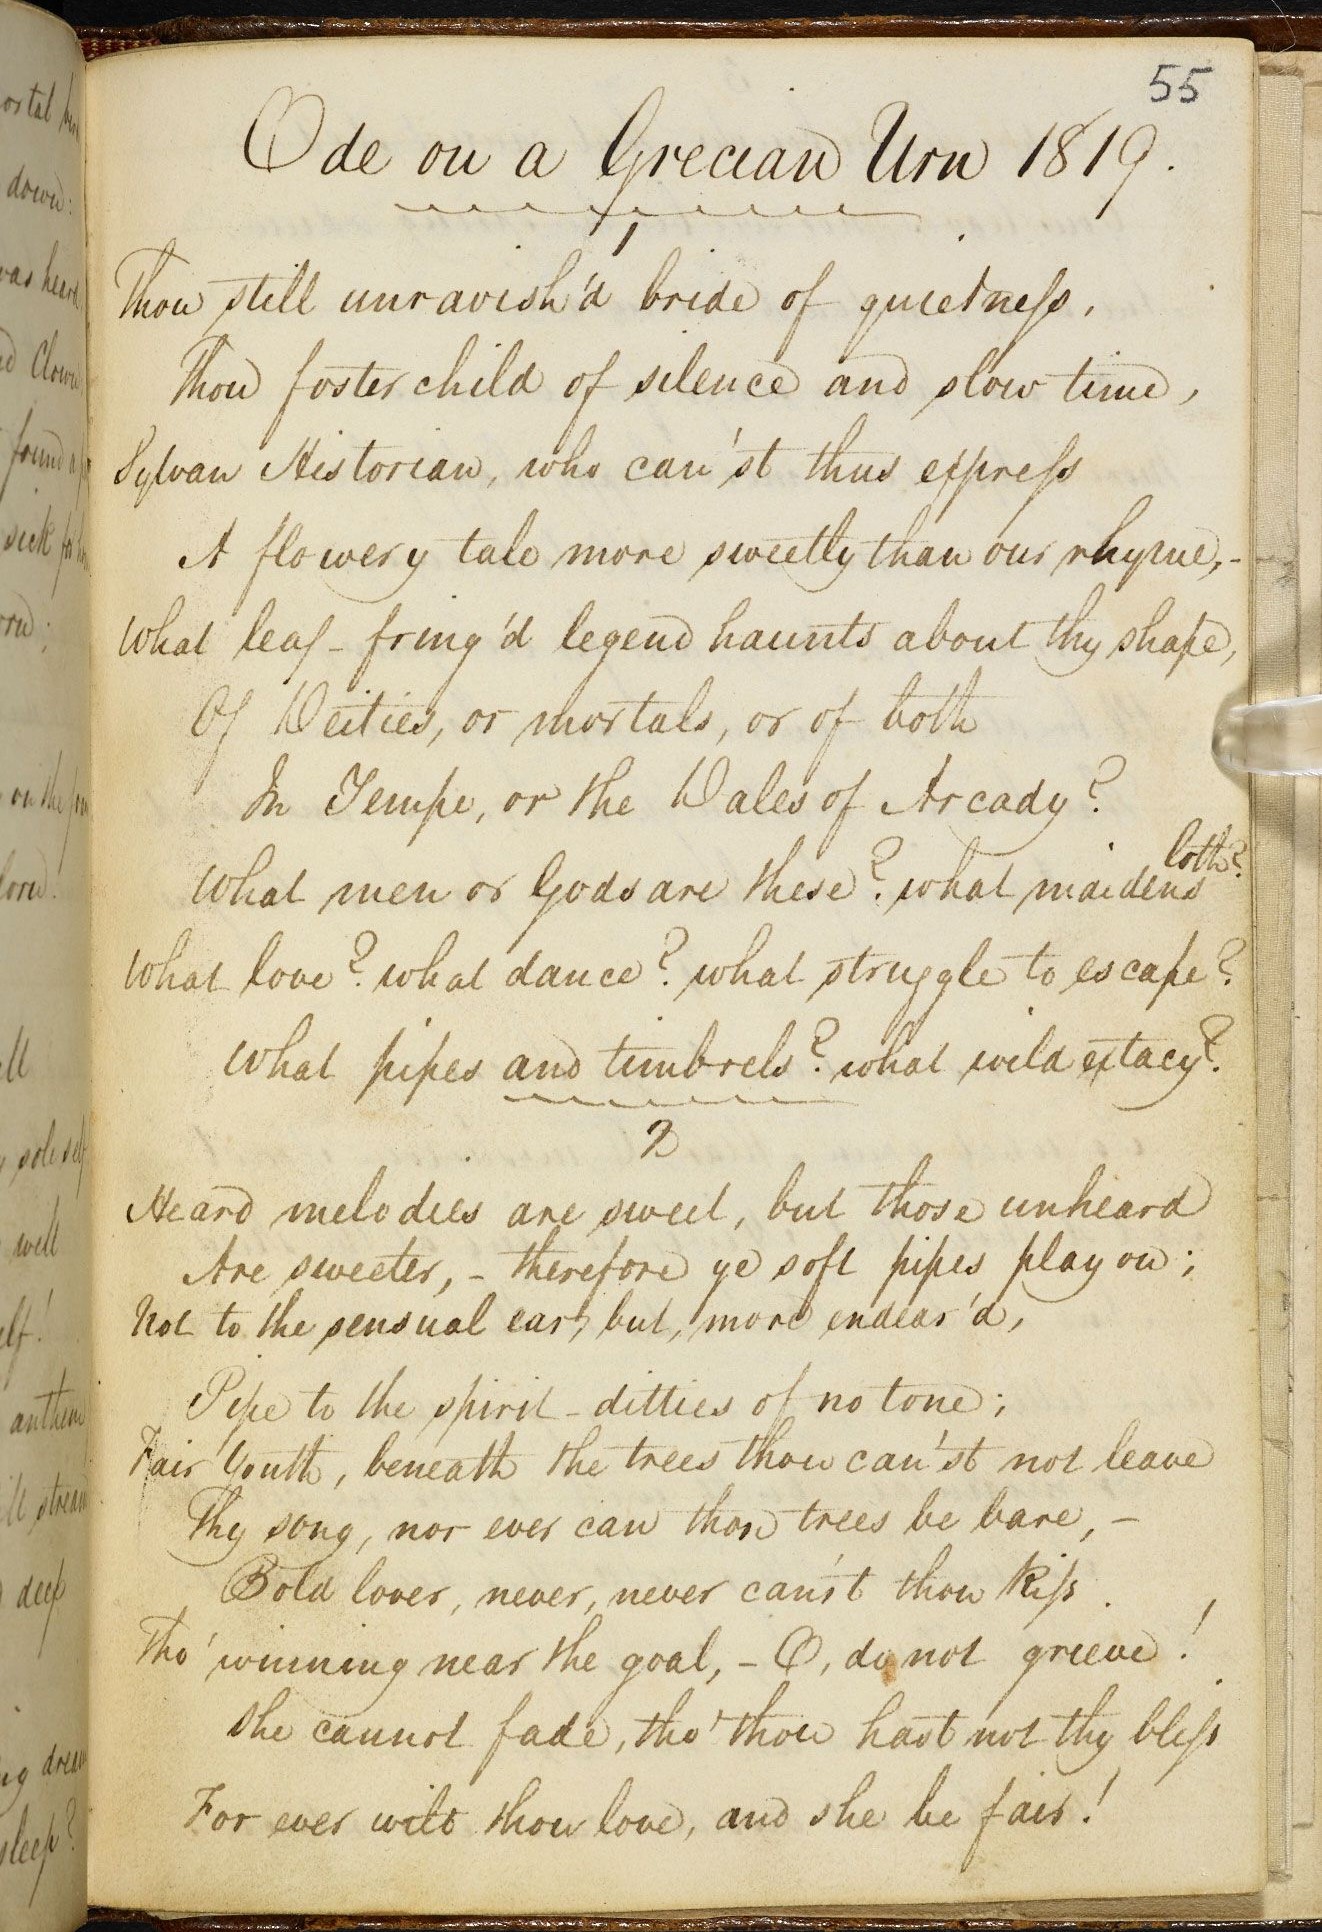 down:
was heard
Clown
found
sick for
on the
sole self
well
anthem
stream
deep
55
Ode on a Grecian Urn 1819.
1
Thou still unravish'd bride of quietness,
Thou foster child of silence and slow time,
Sylvan Historian, who can'st thus express
A flowery tale more sweetly than our rhyme,-
What leaf-fring'd legend haunts about thy shape,
Of Deities, or mortals, or of both
In Tempe, or the Dales of Arcady?
loth?
What men or Gods are these? what maidens
What love? what dance? what struggle to escape?
What pipes and timbrels? what wild extacy?
2
Heard melodies are sweet, but those unheard
Are sweeter,- therefore ye soft pipes play on;
Not to the sensual ear, but, more endear'd,
Pipe to the spirit-ditties of no tone;
Fair Youth, beneath the trees thou can'st not leave
Thy song, nor ever can those trees be bare,-
Bold lover, never, never can'st thou kiss
Tho' winning near the goal,- O, do not grieve!
She cannot fade, tho' thou hast not thy bliss
For ever wilt thou love, and she be fair!